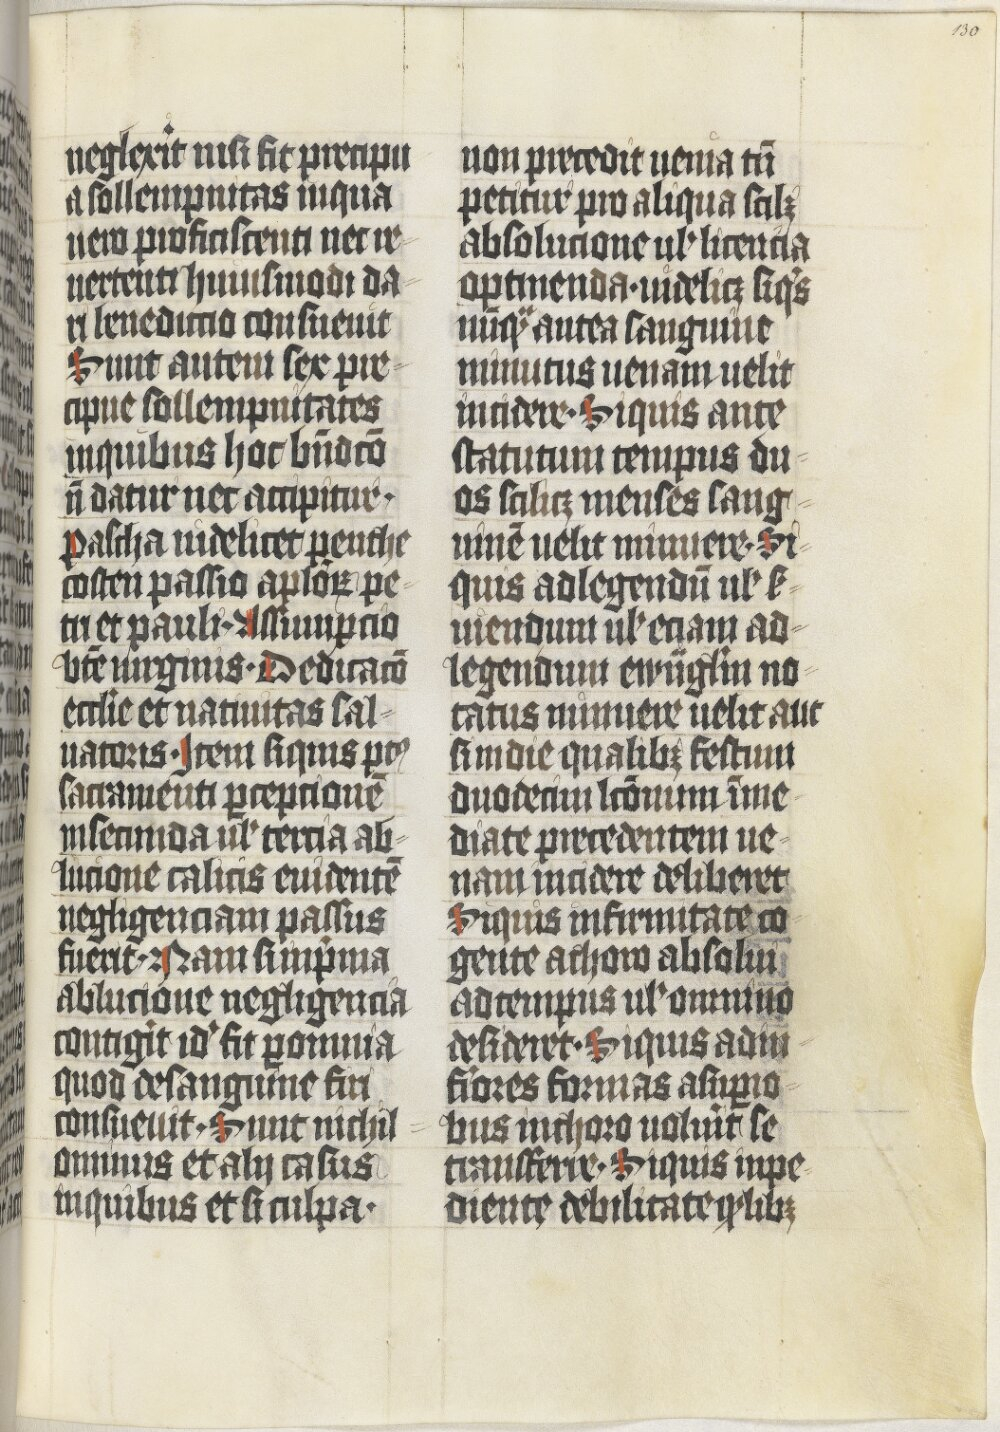 130
neglexit nisi sit precipu
a sollempnitas inqua
uero proficiscenti nec re-
uertenti huiusmodi da-
ri benedictio consueuit
Sunt autem sex pre-
cipue sollempnitates
inquibus hoc bn̄dcō
n̄ datur nec accipitur.
pascha uidelicet penthe
costen passio aplōꝝ pe-
tri et pauli. Assumpcio
btē uirginis. Dedicacō
ecclie et natiuitas sal-
uatoris. Item siquis pꝰ
sacramenti ꝑcepcionē
insecunda ul' tercia ab-
lucione calicis euidentē
negligenciam passus
fuerit. Nam si inp'ma
ablucione negligencia
contigit id' fit ꝑ omnia
quod desanguine firi
consueuit. Sunt nichil-
ominus et alij casus
inquibus et si culpa.
non precedit uenia tn̄
petitur pro aliqua scilꝫ
absolucione ul' licencia
optinenda. uidelicꝫ siq's
nūsqᵃ antea sanguine
minutus uenam uelit
incidere. Siquis ante
statutum tempus du-
os scilicꝫ menses sang-
uinē uelit minuere. Si-
quis adlegendū ul' s'-
uiendum ul' eciam ad-
legendum ewāgl'm no-
tatus minuere uelit aut
si indie qualibꝫ festum
duodecim lcōnum īme-
diate precedentem ue-
nam incidere deliberet
Siquis infirmitate co-
gente achoro absolui
adtempus ul' omnino
desideret. Siquis adin-
fi'ores formas asup'io-
bus inchoro uolūit se
transferre. Siquis inpe-
diente debilitate qᵃlibꝫ